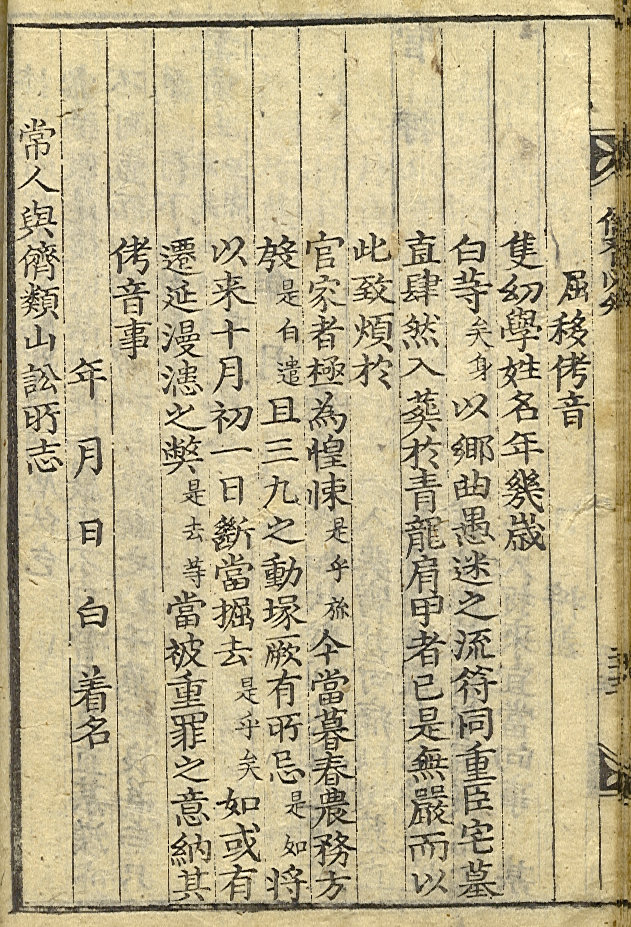 屈移侤音
隻幼學姓名年幾歲
白等矣身以鄉曲愚迷之流符同重臣宅墓
直肆然入葬於青龍肩甲者已是無嚴而以
此致煩於
官家者極為惶悚是乎旀今當暮春農務方
殷是白遣且三九之動塚厥有所忌是如將
以来十月初一日斷當掘去是乎矣如或有
遷延漫漶之獘是去等當被重罪之意納其
侤音事
年 月 日 白 着名
常人與儕類山訟所志